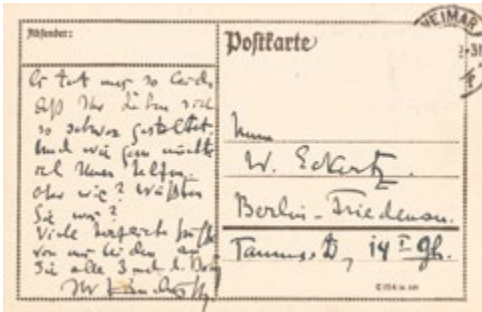 WEIMAR
Absender:
Postkarte
Es tut mir so leid,
daß Ihr Leben sich
so schwer gestaltet.
Und wie gern möchte
ich Ihnen helfen.
Aber wie? Wüßten
Sie wie?
Viele herzliche Grüße
von uns beiden an
Sie alle 3 und
Ihr
Herrn
W. Eckertz.
Berlin-Friedenau.
Taunus 14 I Gh.